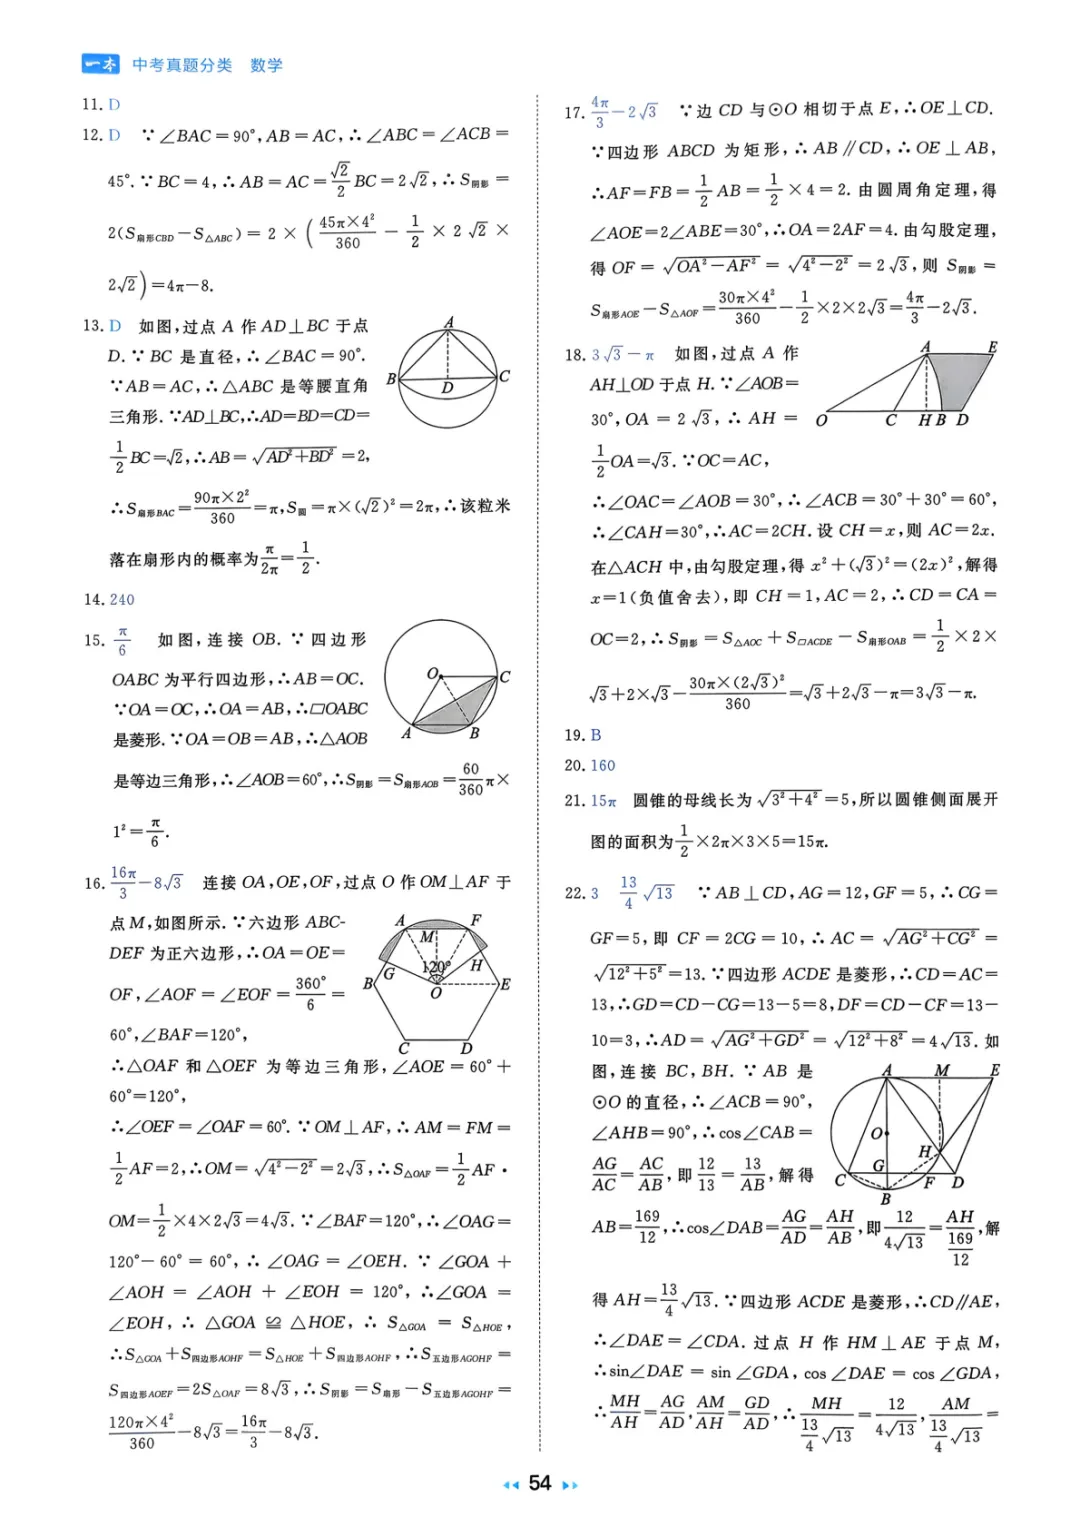 一本 中考真题分类 数学
11. D
12. D ∵∠BAC=90°,AB=AC,∴∠ABC=∠ACB=
45°.∵BC=4,∴AB=AC=√2/2 BC=2√2,∴S阴影=
2(S扇形CBD-S△ABC)=2×(45π×4²/360-1/2×2√2×
2√2)=4π-8.
13. D 如图,过点A作AD⊥BC于点
D.∵BC是直径,∴∠BAC=90°.
∵AB=AC,∴△ABC是等腰直角
三角形.∵AD⊥BC,∴AD=BD=CD=
1/2 BC=√2,∴AB=√(AD²+BD²)=2,
∴S扇形BAC=90π×2²/360=π,S圆=π×(√2)²=2π,∴该粒米
落在扇形内的概率为π/2π=1/2.
A
B
D
C
14. 240
15. π/6 如图,连接OB.∵四边形
OABC为平行四边形,∴AB=OC.
∵OA=OC,∴OA=AB,∴▱OABC
是菱形.∵OA=OB=AB,∴△AOB
是等边三角形,∴∠AOB=60°,∴S阴影=S扇形AOB=60/360 π×
1²=π/6.
O
C
A
B
16. 16π/3-8√3 连接OA,OE,OF,过点O作OM⊥AF于
点M,如图所示.∵六边形ABC-
DEF为正六边形,∴OA=OE=
OF,∠AOF=∠EOF=360°/6=
60°,∠BAF=120°,
A
F
M
B
G
120°
H
O
E
C
D
∴△OAF和△OEF为等边三角形,∠AOE=60°+
60°=120°,
∴∠OEF=∠OAF=60°.∵OM⊥AF,∴AM=FM=
1/2 AF=2,∴OM=√(4²-2²)=2√3,∴S△OAF=1/2 AF·
OM=1/2×4×2√3=4√3.∵∠BAF=120°,∴∠OAG=
120°-60°=60°,∴∠OAG=∠OEH.∵∠GOA+
∠AOH=∠AOH+∠EOH=120°,∴∠GOA=
∠EOH,∴△GOA≌△HOE,∴S△GOA=S△HOE,
∴S△GOA+S四边形AOHF=S△HOE+S四边形AOHF,∴S五边形AGOHF=
S四边形AOEF=2S△OAF=8√3,∴S阴影=S扇形-S五边形AGOHF=
120π×4²/360-8√3=16π/3-8√3.
17. 4π/3-2√3 ∵边CD与⊙O相切于点E,∴OE⊥CD.
∵四边形ABCD为矩形,∴AB∥CD,∴OE⊥AB,
∴AF=FB=1/2 AB=1/2×4=2.由圆周角定理,得
∠AOE=2∠ABE=30°,∴OA=2AF=4.由勾股定理,
得OF=√(OA²-AF²)=√(4²-2²)=2√3,则S阴影=
S扇形AOE-S△AOF=30π×4²/360-1/2×2×2√3=4π/3-2√3.
18. 3√3-π 如图,过点A作
AH⊥OD于点H.∵∠AOB=
30°,OA=2√3,∴AH=
1/2 OA=√3.∵OC=AC,
A
E
O
C
H
B
D
∴∠OAC=∠AOB=30°,∴∠ACB=30°+30°=60°,
∴∠CAH=30°,∴AC=2CH.设CH=x,则AC=2x.
在△ACH中,由勾股定理,得x²+(√3)²=(2x)²,解得
x=1(负值舍去),即CH=1,AC=2,∴CD=CA=
OC=2,∴S阴影=S△AOC+S▱ACDE-S扇形OAB=1/2×2×
√3+2×√3-30π×(2√3)²/360=√3+2√3-π=3√3-π.
19. B
20. 160
21. 15π 圆锥的母线长为√(3²+4²)=5,所以圆锥侧面展开
图的面积为1/2×2π×3×5=15π.
22. 3 13/4 √13 ∵AB⊥CD,AG=12,GF=5,∴CG=
GF=5,即CF=2CG=10,∴AC=√(AG²+CG²)=
√(12²+5²)=13.∵四边形ACDE是菱形,∴CD=AC=
13,∴GD=CD-CG=13-5=8,DF=CD-CF=13-
10=3,∴AD=√(AG²+GD²)=√(12²+8²)=4√13.如
图,连接BC,BH.∵AB是
⊙O的直径,∴∠ACB=90°,
∠AHB=90°,∴cos∠CAB=
AG/AC=AC/AB,即12/13=13/AB,解得
A
M
E
O
H
G
C
F
D
B
AB=169/12,∴cos∠DAB=AG/AD=AH/AB,即12/(4√13)=AH/(169/12),解
得AH=13/4 √13.∵四边形ACDE是菱形,∴CD∥AE,
∴∠DAE=∠CDA.过点H作HM⊥AE于点M,
∴sin∠DAE=sin∠GDA,cos∠DAE=cos∠GDA,
∴MH/AH=AG/AD,AM/AH=GD/AD,∴MH/(13/4 √13)=12/(4√13),AM/(13/4 √13)=
54